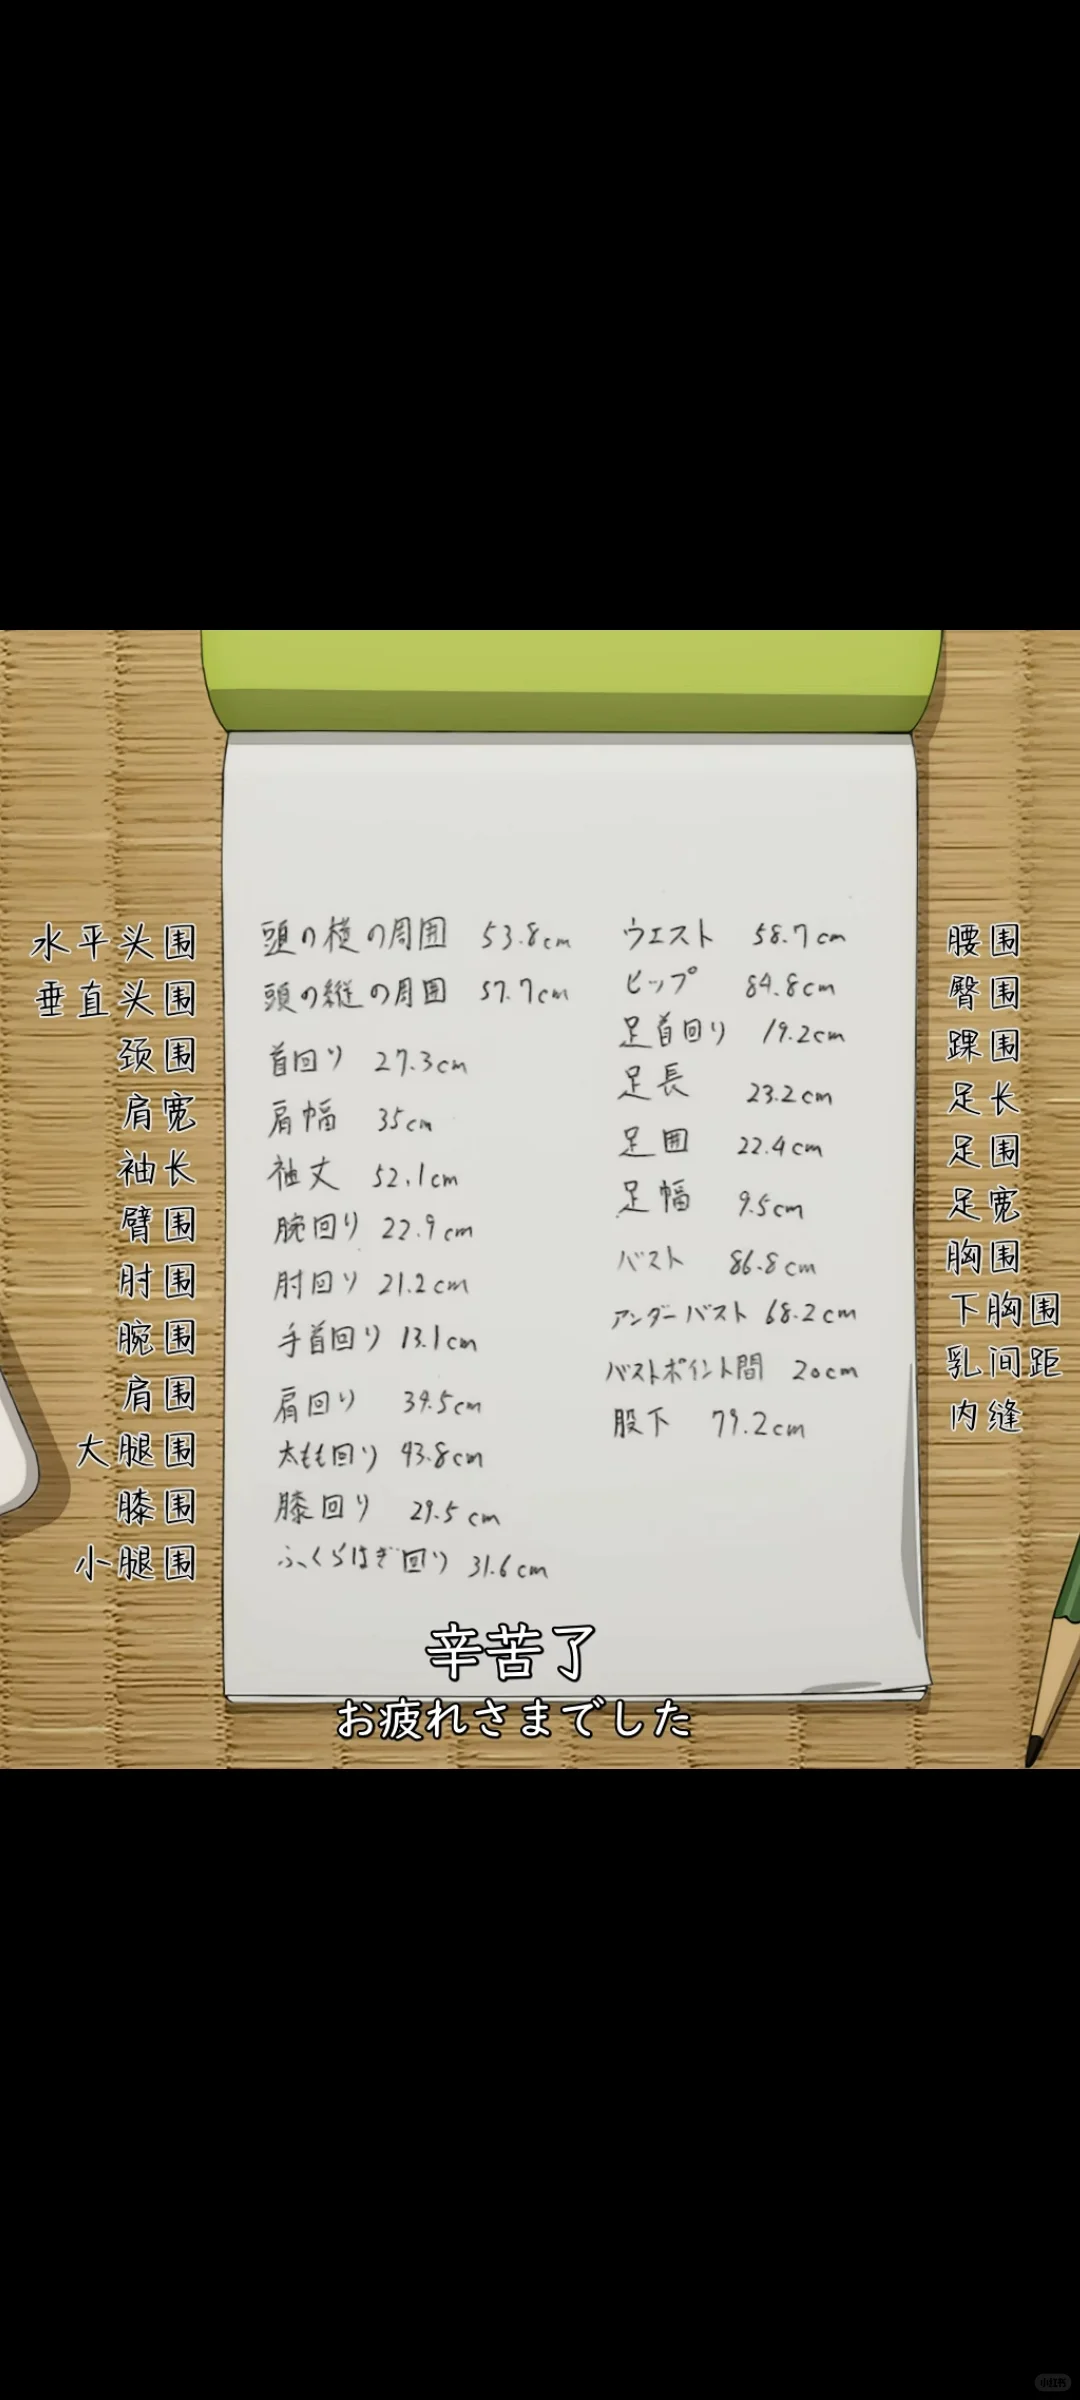 水平头围
垂直头围
颈围
肩宽
袖长
臂围
肘围
腕围
肩围
大腿围
膝围
小腿围
頭の横の周囲 53.8cm
頭の縦の周囲 57.7cm
首回り 27.3cm
肩幅 35cm
袖丈 52.1cm
腕回り 22.9cm
肘回り 21.2cm
手首回り 13.1cm
肩回り 39.5cm
太もも回り 43.8cm
膝回り 29.5cm
ふくらはぎ回り 31.6cm
ウエスト 58.7cm
ヒップ 84.8cm
足首回り 19.2cm
足長 23.2cm
足囲 22.4cm
足幅 9.5cm
バスト 86.8cm
アンダーバスト 68.2cm
バストポイント間 20cm
股下 79.2cm
腰围
臀围
踝围
足长
足围
足宽
胸围
下胸围
乳间距
内缝
辛苦了
お疲れさまでした
小红书